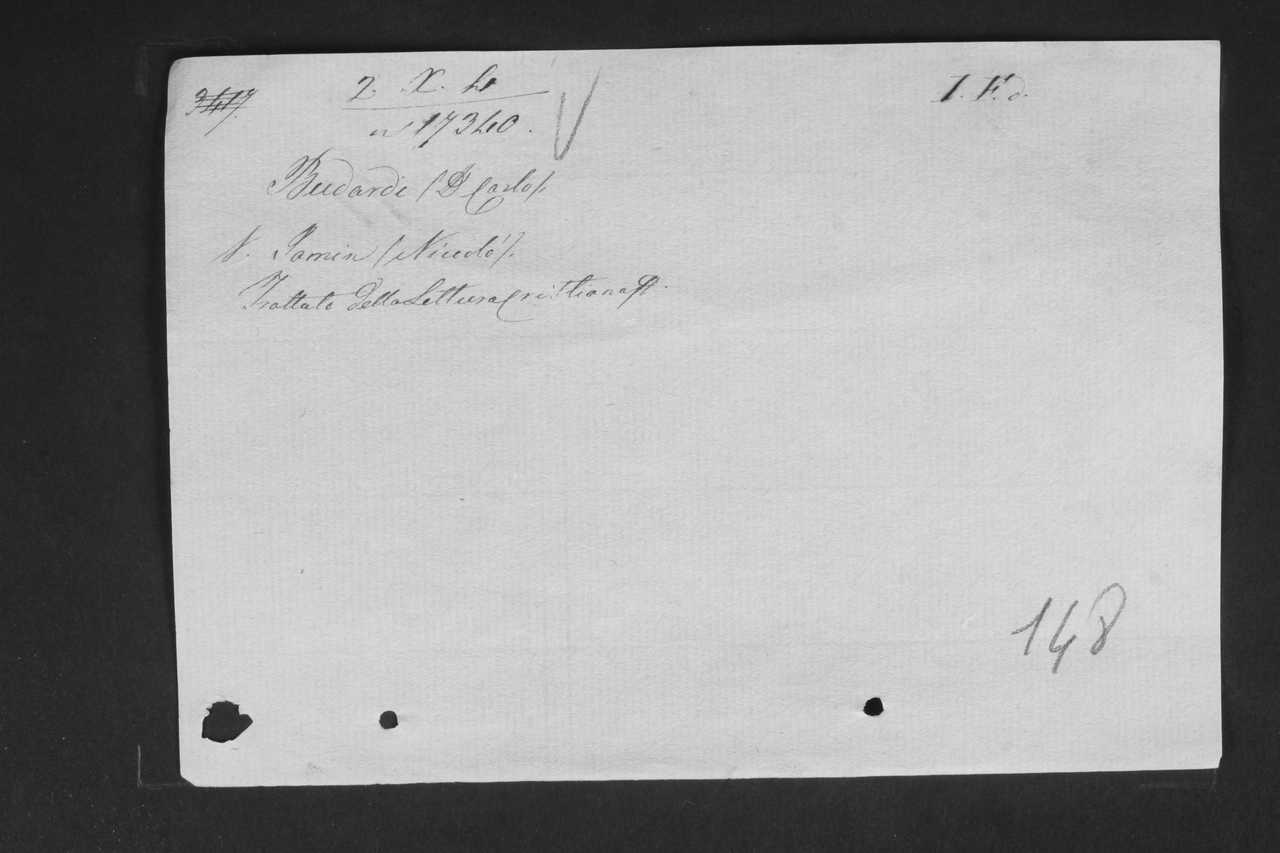 3417.
2. X. 4
n° 17340.
I. Fo.
Budardi (D. Carlo).
V. Jamin (Niccolò).
Trattato della Lettura Cristiana &.
148